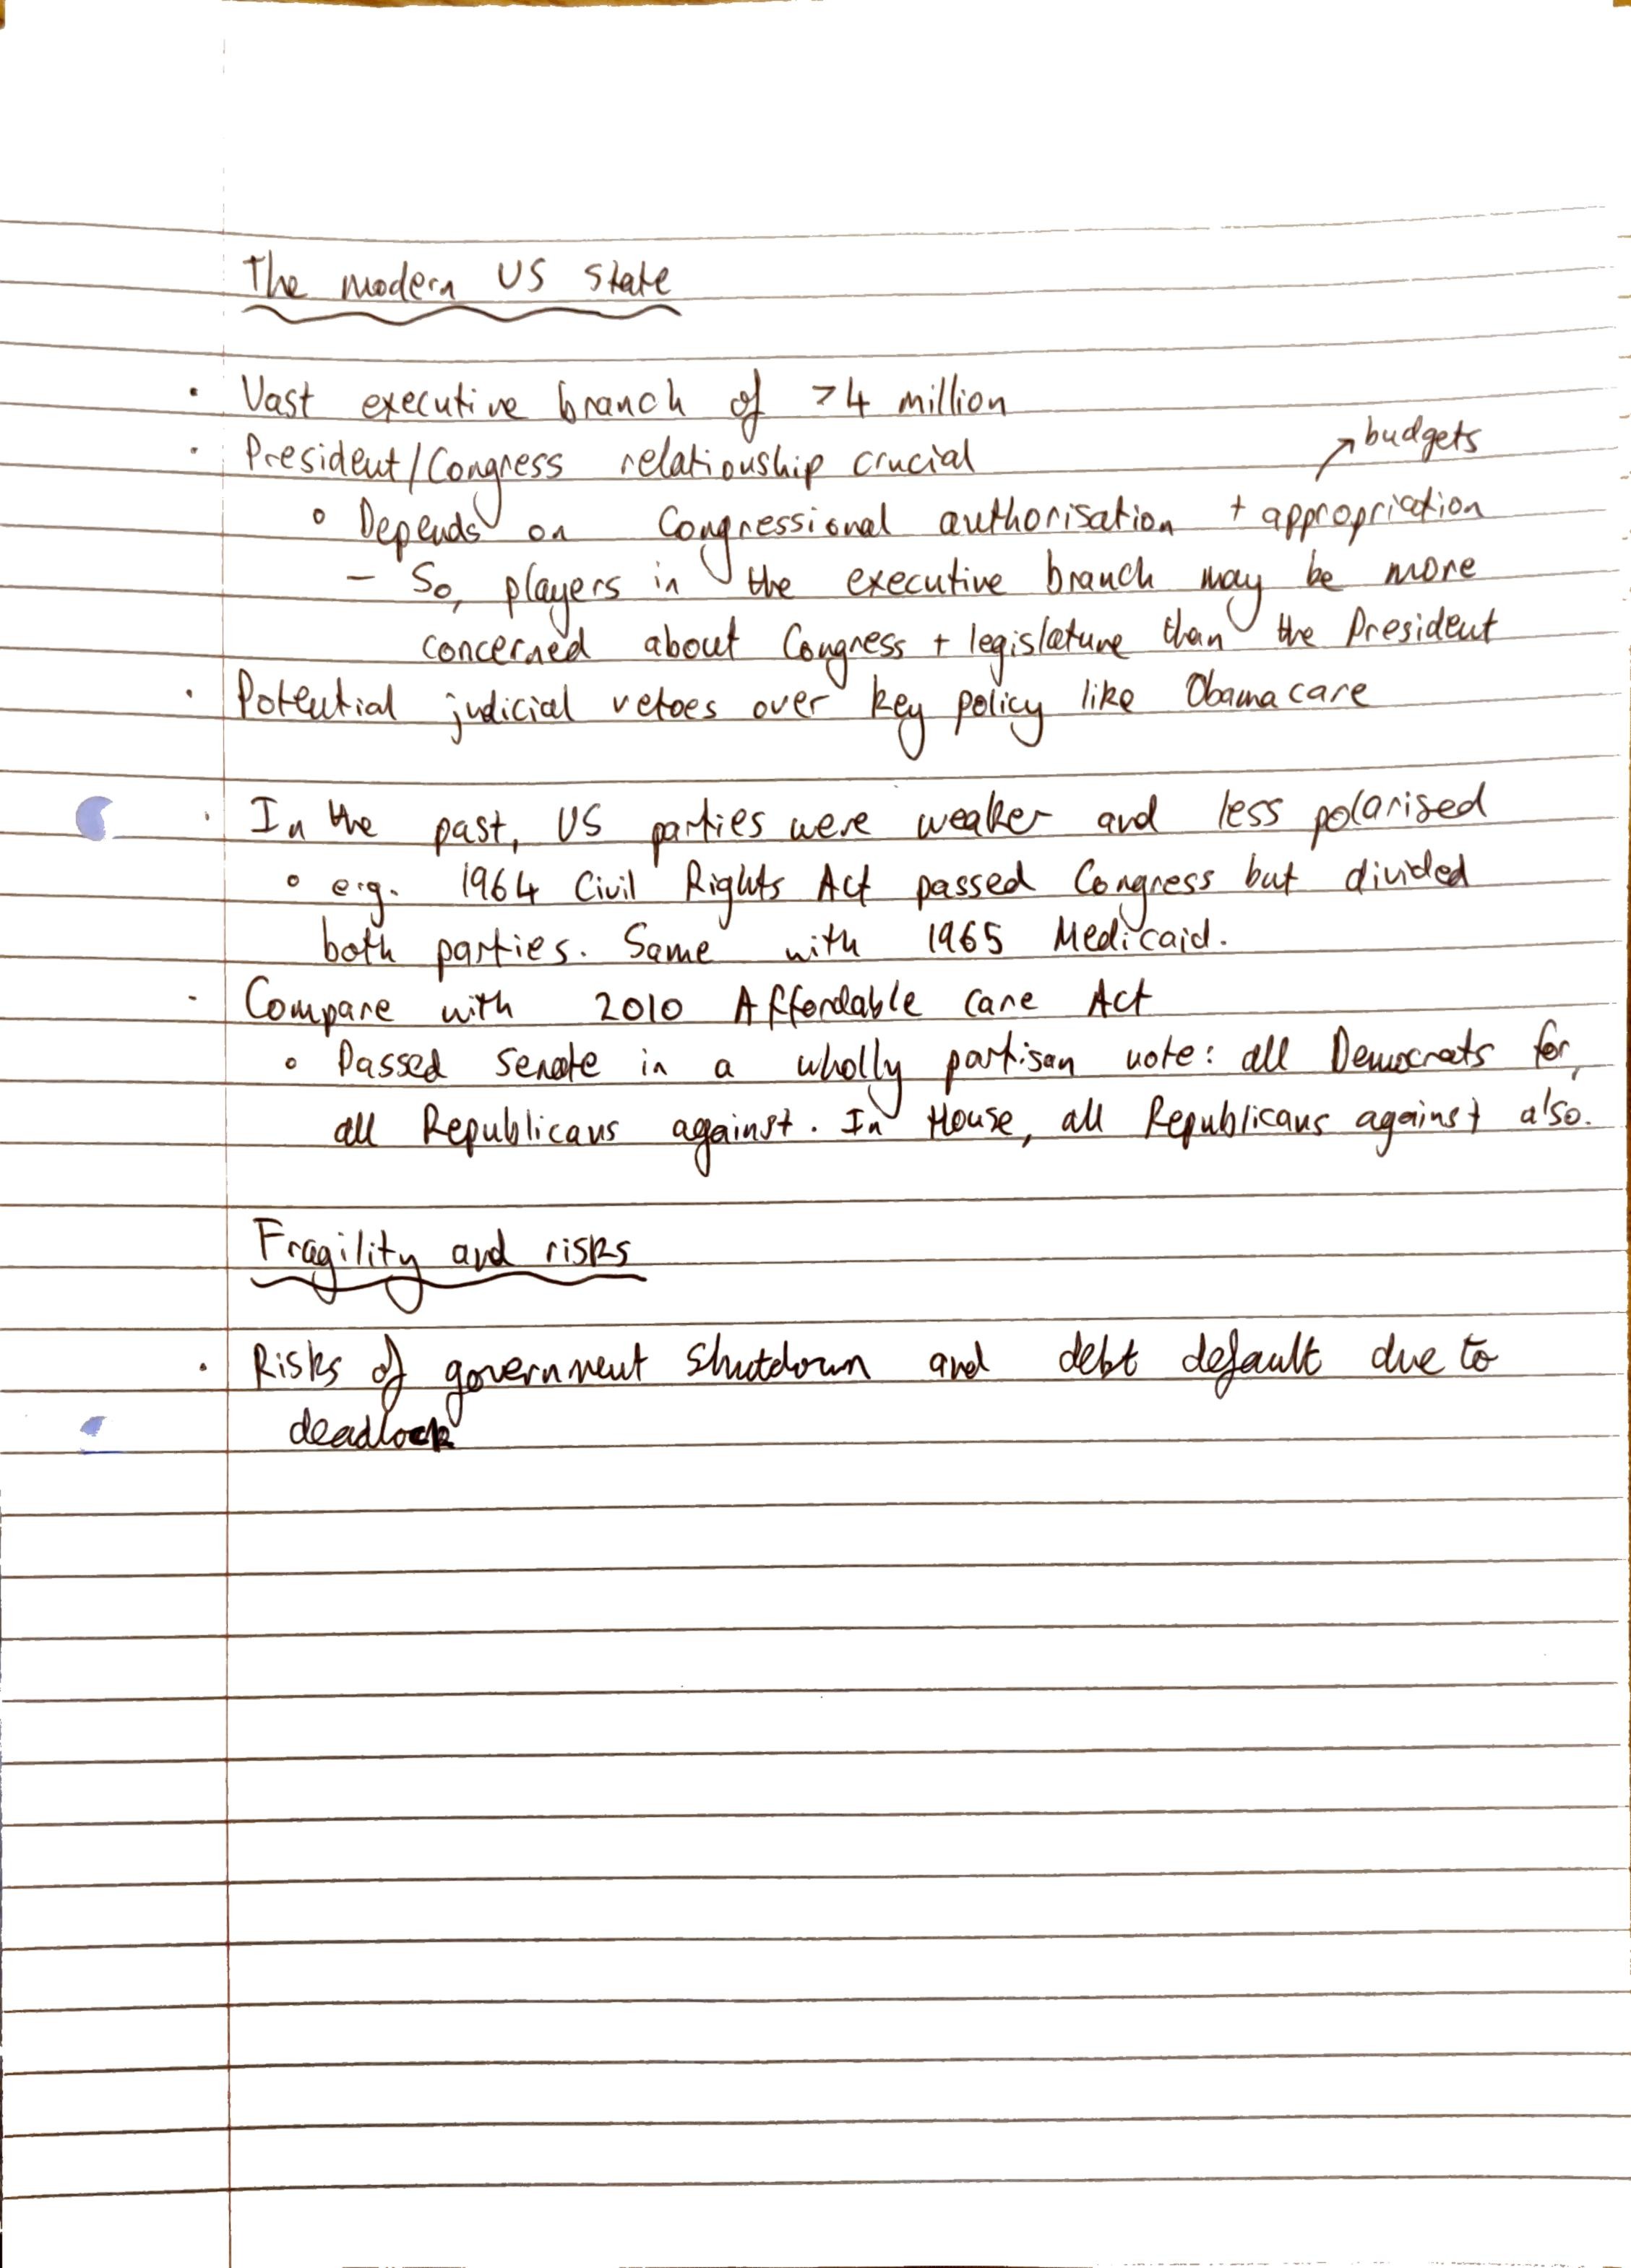 The modern US state
· Vast executive branch of >4 million
· President/Congress relationship crucial
↗ budgets
° Depends on Congressional authorisation + appropriation
– So, players in the executive branch may be more
concerned about Congress + legislature than the President
· Potential judicial vetoes over key policy like Obamacare
· In the past, US parties were weaker and less polarised
° e.g. 1964 Civil Rights Act passed Congress but divided
both parties. Same with 1965 Medicaid.
· Compare with 2010 Affordable Care Act
° Passed Senate in a wholly partisan vote: all Democrats for,
all Republicans against. In House, all Republicans against also.
Fragility and risks
· Risks of government shutdown and debt default due to
deadlock